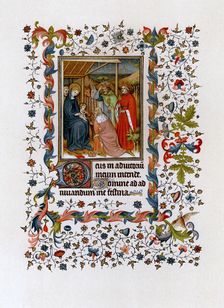 Deus in adiutoriu
meum intende.
Domine ad ad
iuuandum me festina